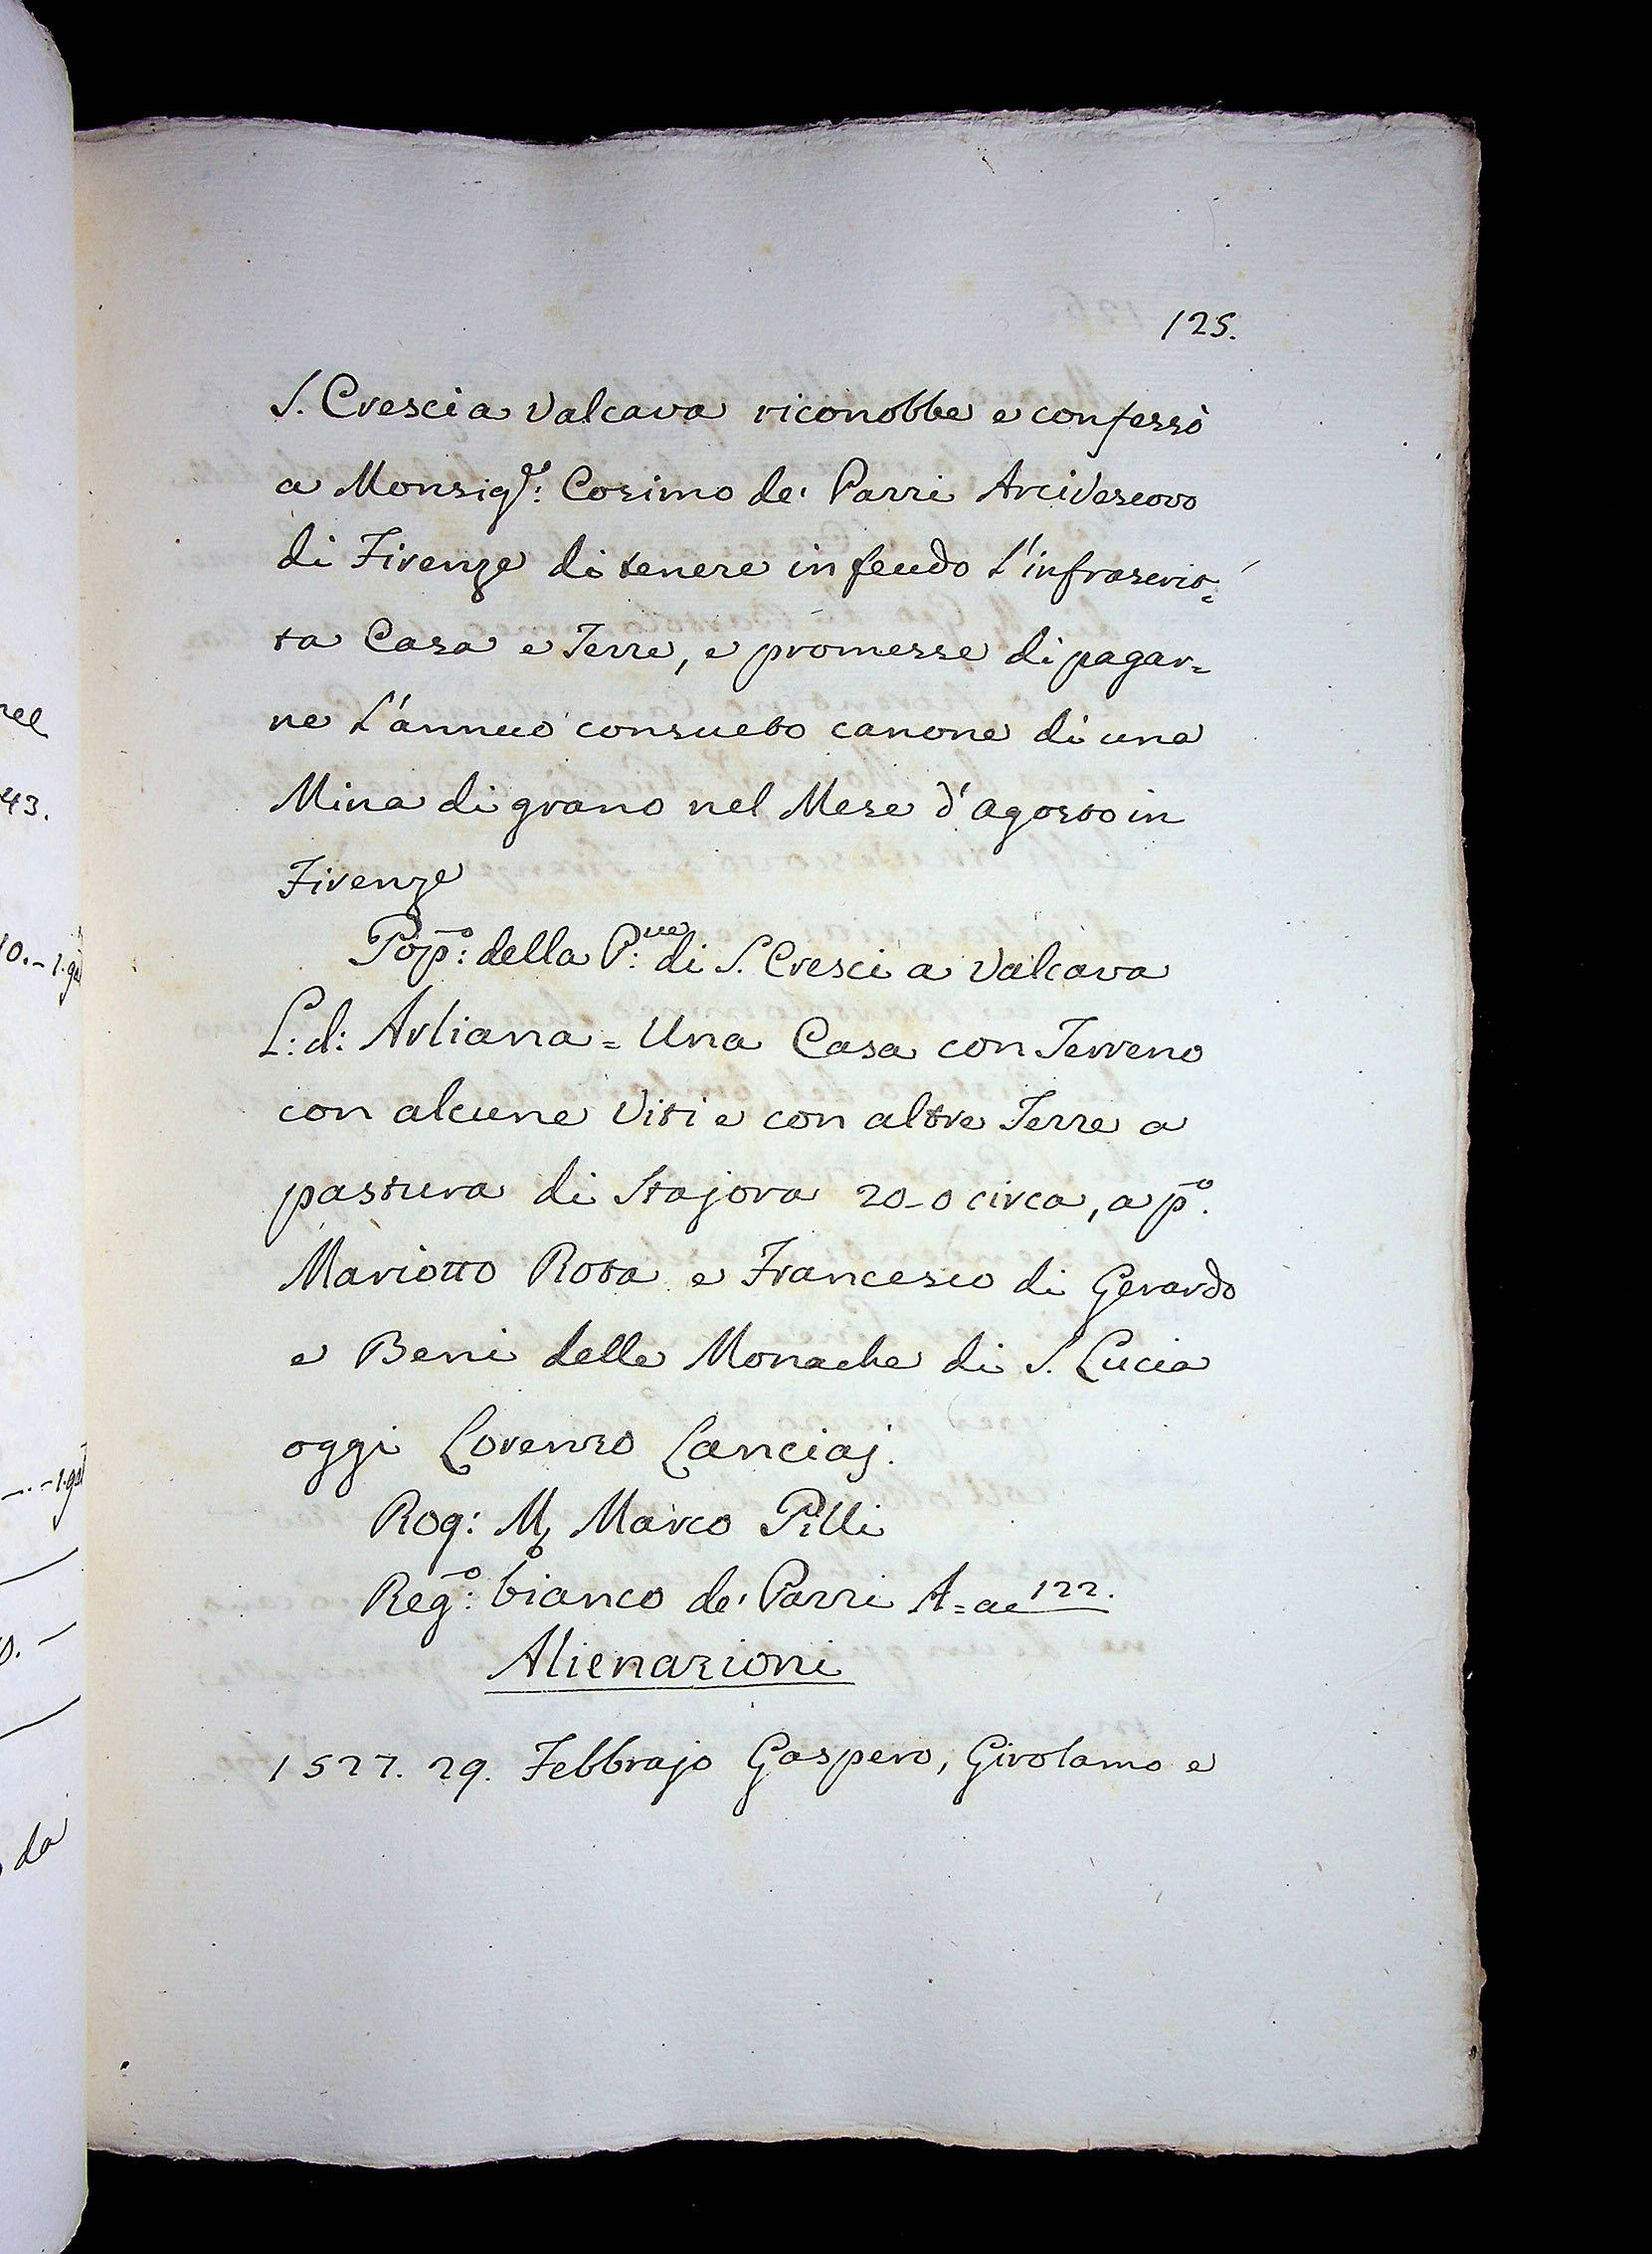 125.
S. Cresci a Valcava riconobbe e confessò
a Monsig.r: Cosimo de' Pazzi Arcivescovo
di Firenze di tenere in feudo l'infrascrit=
ta Casa e Terre, e promesse di pagar=
ne l'annuo consueto canone di una
Mina di grano nel Mese d'Agosto in
Firenze
Pop.o: della P.ve: di S. Cresci a Valcava
L: d: Arliana = Una Casa con Terreno
con alcune Viti e con altre Terre a
pastura di Stajora 20-0 circa, a p.o
Mariotto Rota e Francesco di Gerardo
e Beni delle Monache di S. Lucia
oggi Lorenzo Lanciaj.
Rog: M.o Marco Pilli
Reg.o: bianco de' Pazzi A = a c 122.
Alienazioni
1527. 29. Febbrajo Gaspero, Girolamo e
nel
43.
10.-1.
0. -
da